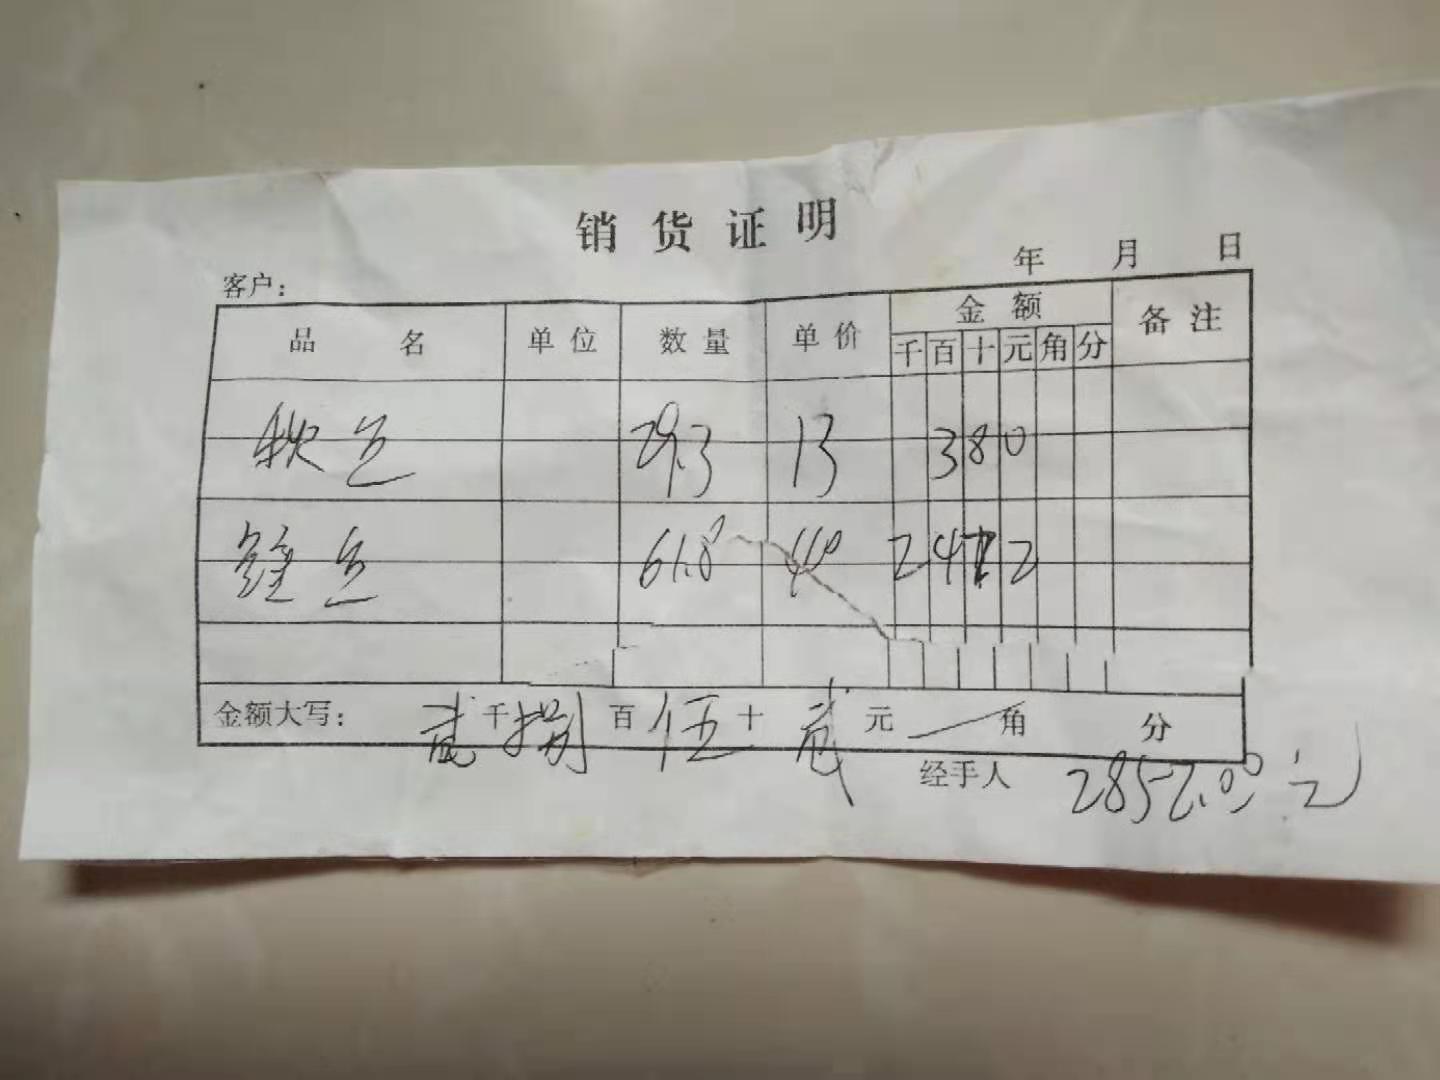 销货证明
年 月 日
客户：
品名 单位 数量 单价 金额 备注
千 百 十 元 角 分
秋豆 29.3 13 380
豆 61.8 40 2472
金额大写： 贰千捌百伍十贰元 角 分
经手人 2852.00元